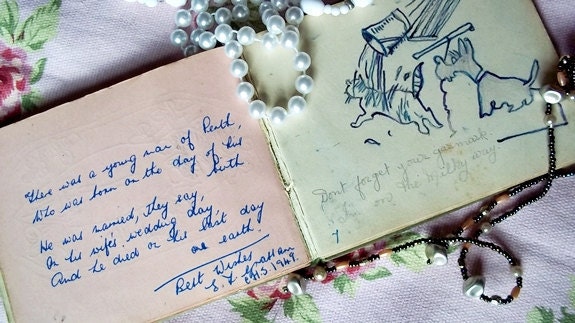 There was a young man of Perth,
Who was born on the day of his
birth
He was married, they say,
On his wife's wedding day,
And he died on his last day
on earth.
Best Wishes
1949.
Dont forget your gas mask
on the Milky way